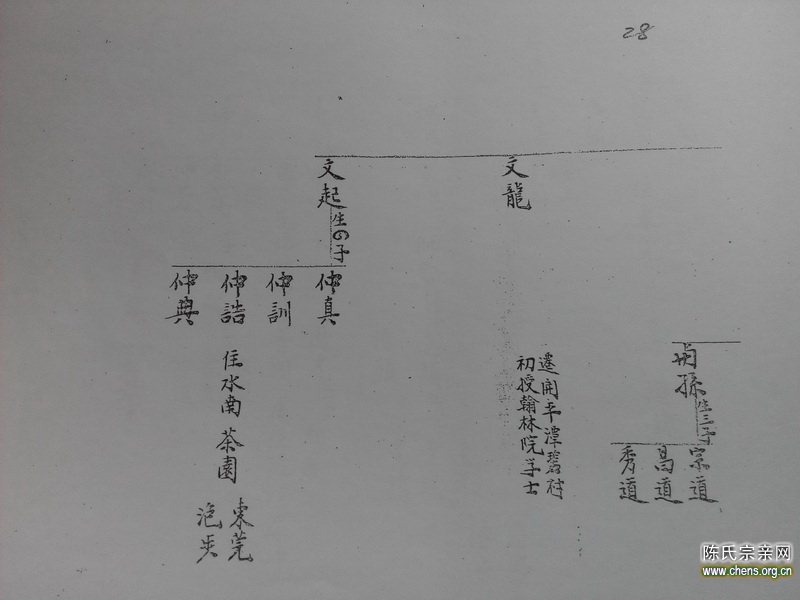 28
孫生三子
宗道
昌道
秀道
文龍
遷開平潭碧村
初授翰林院学士
文起生の子
仲真
仲訓
仲誥
住水南茶園
東莞
仲典
陈氏宗亲网
www.chens.org.cn